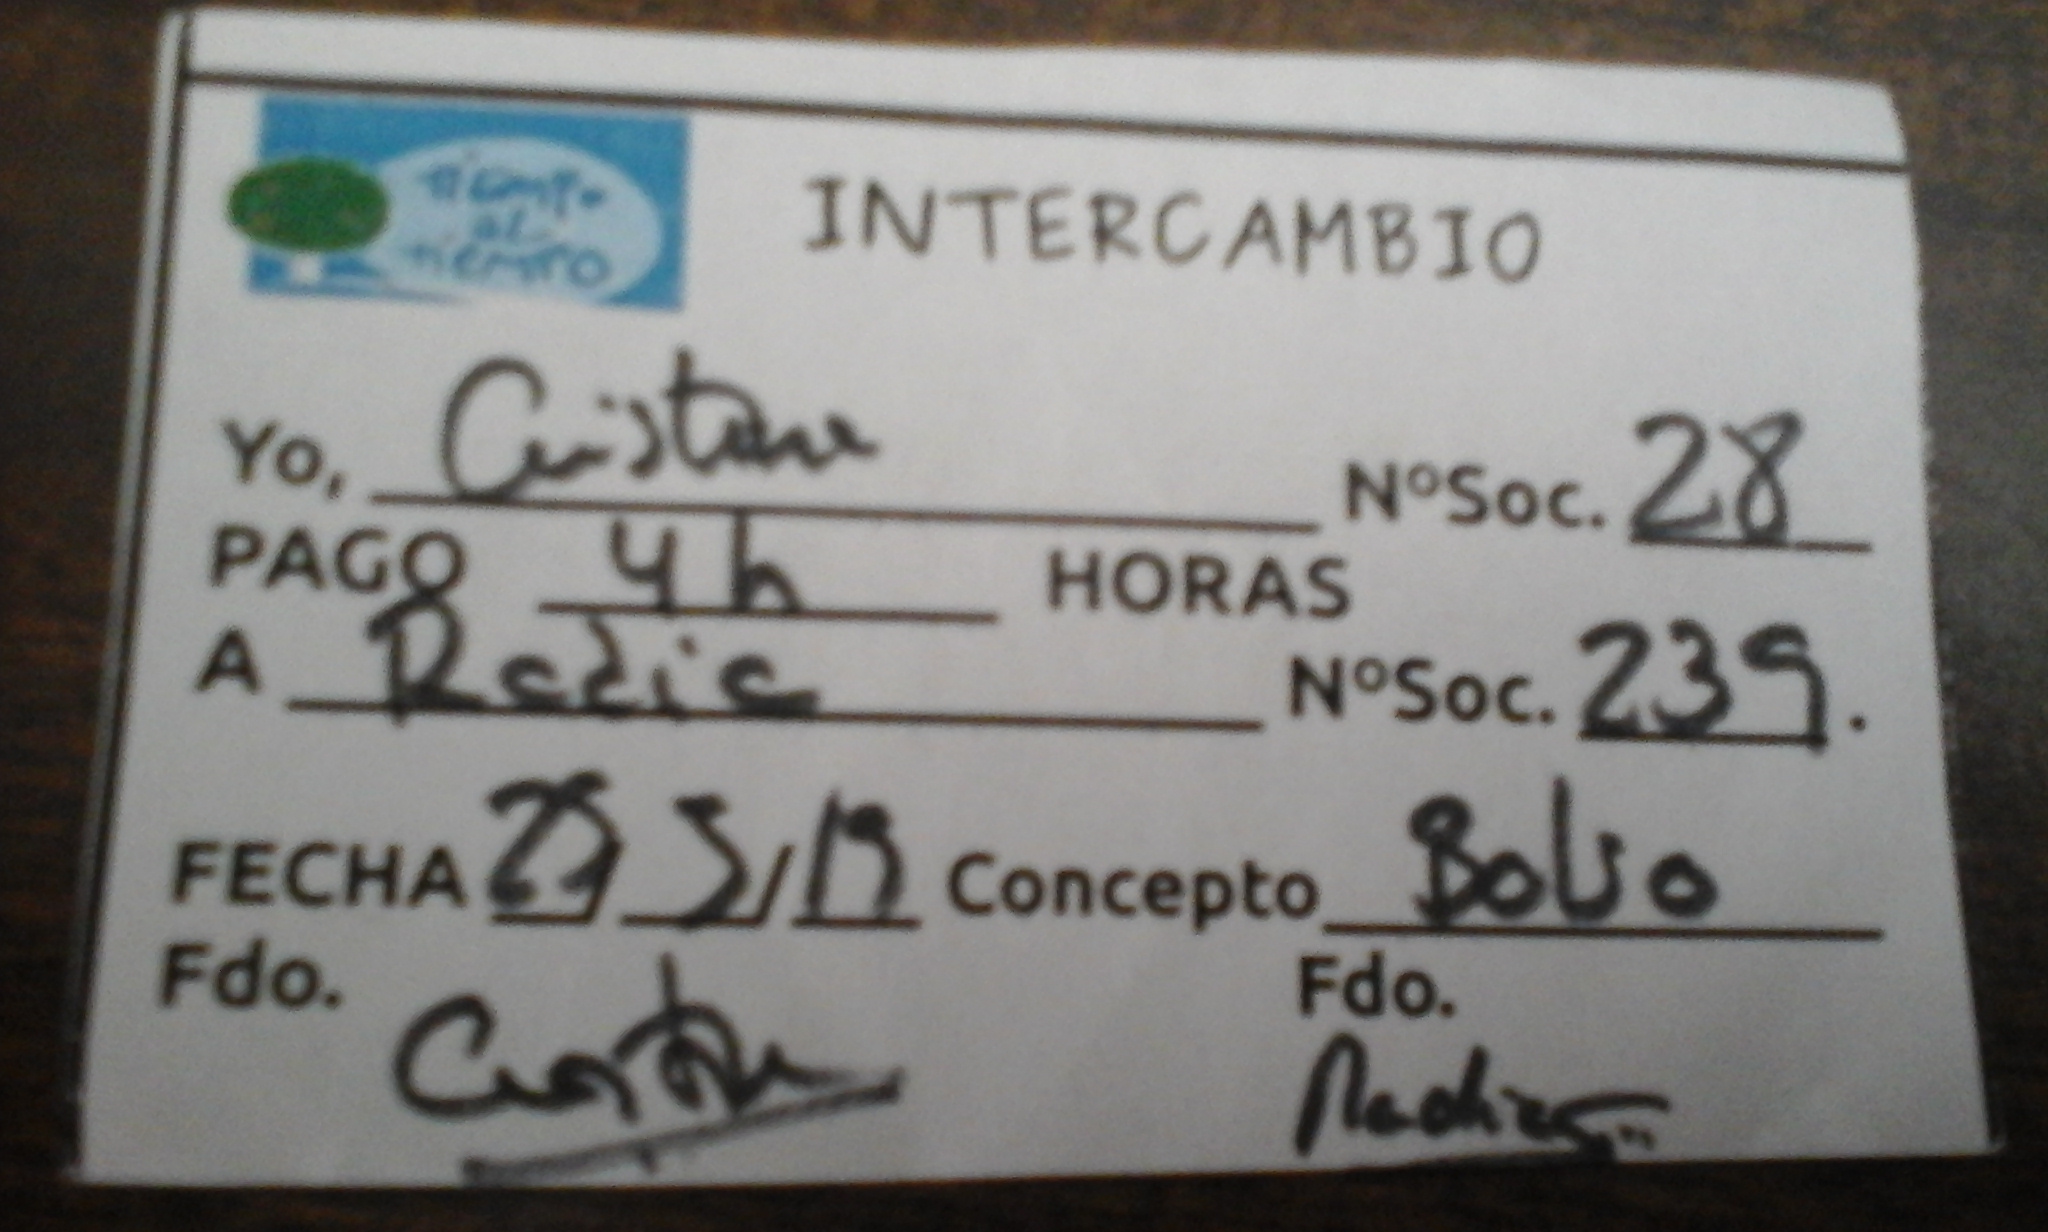 TIEMPO
AL
TIEMPO
INTERCAMBIO
Yo, Cristina NºSoc. 28
PAGO 4 h HORAS
A Radia NºSoc. 239.
FECHA 29/5/19 Concepto Bolso
Fdo. Fdo.